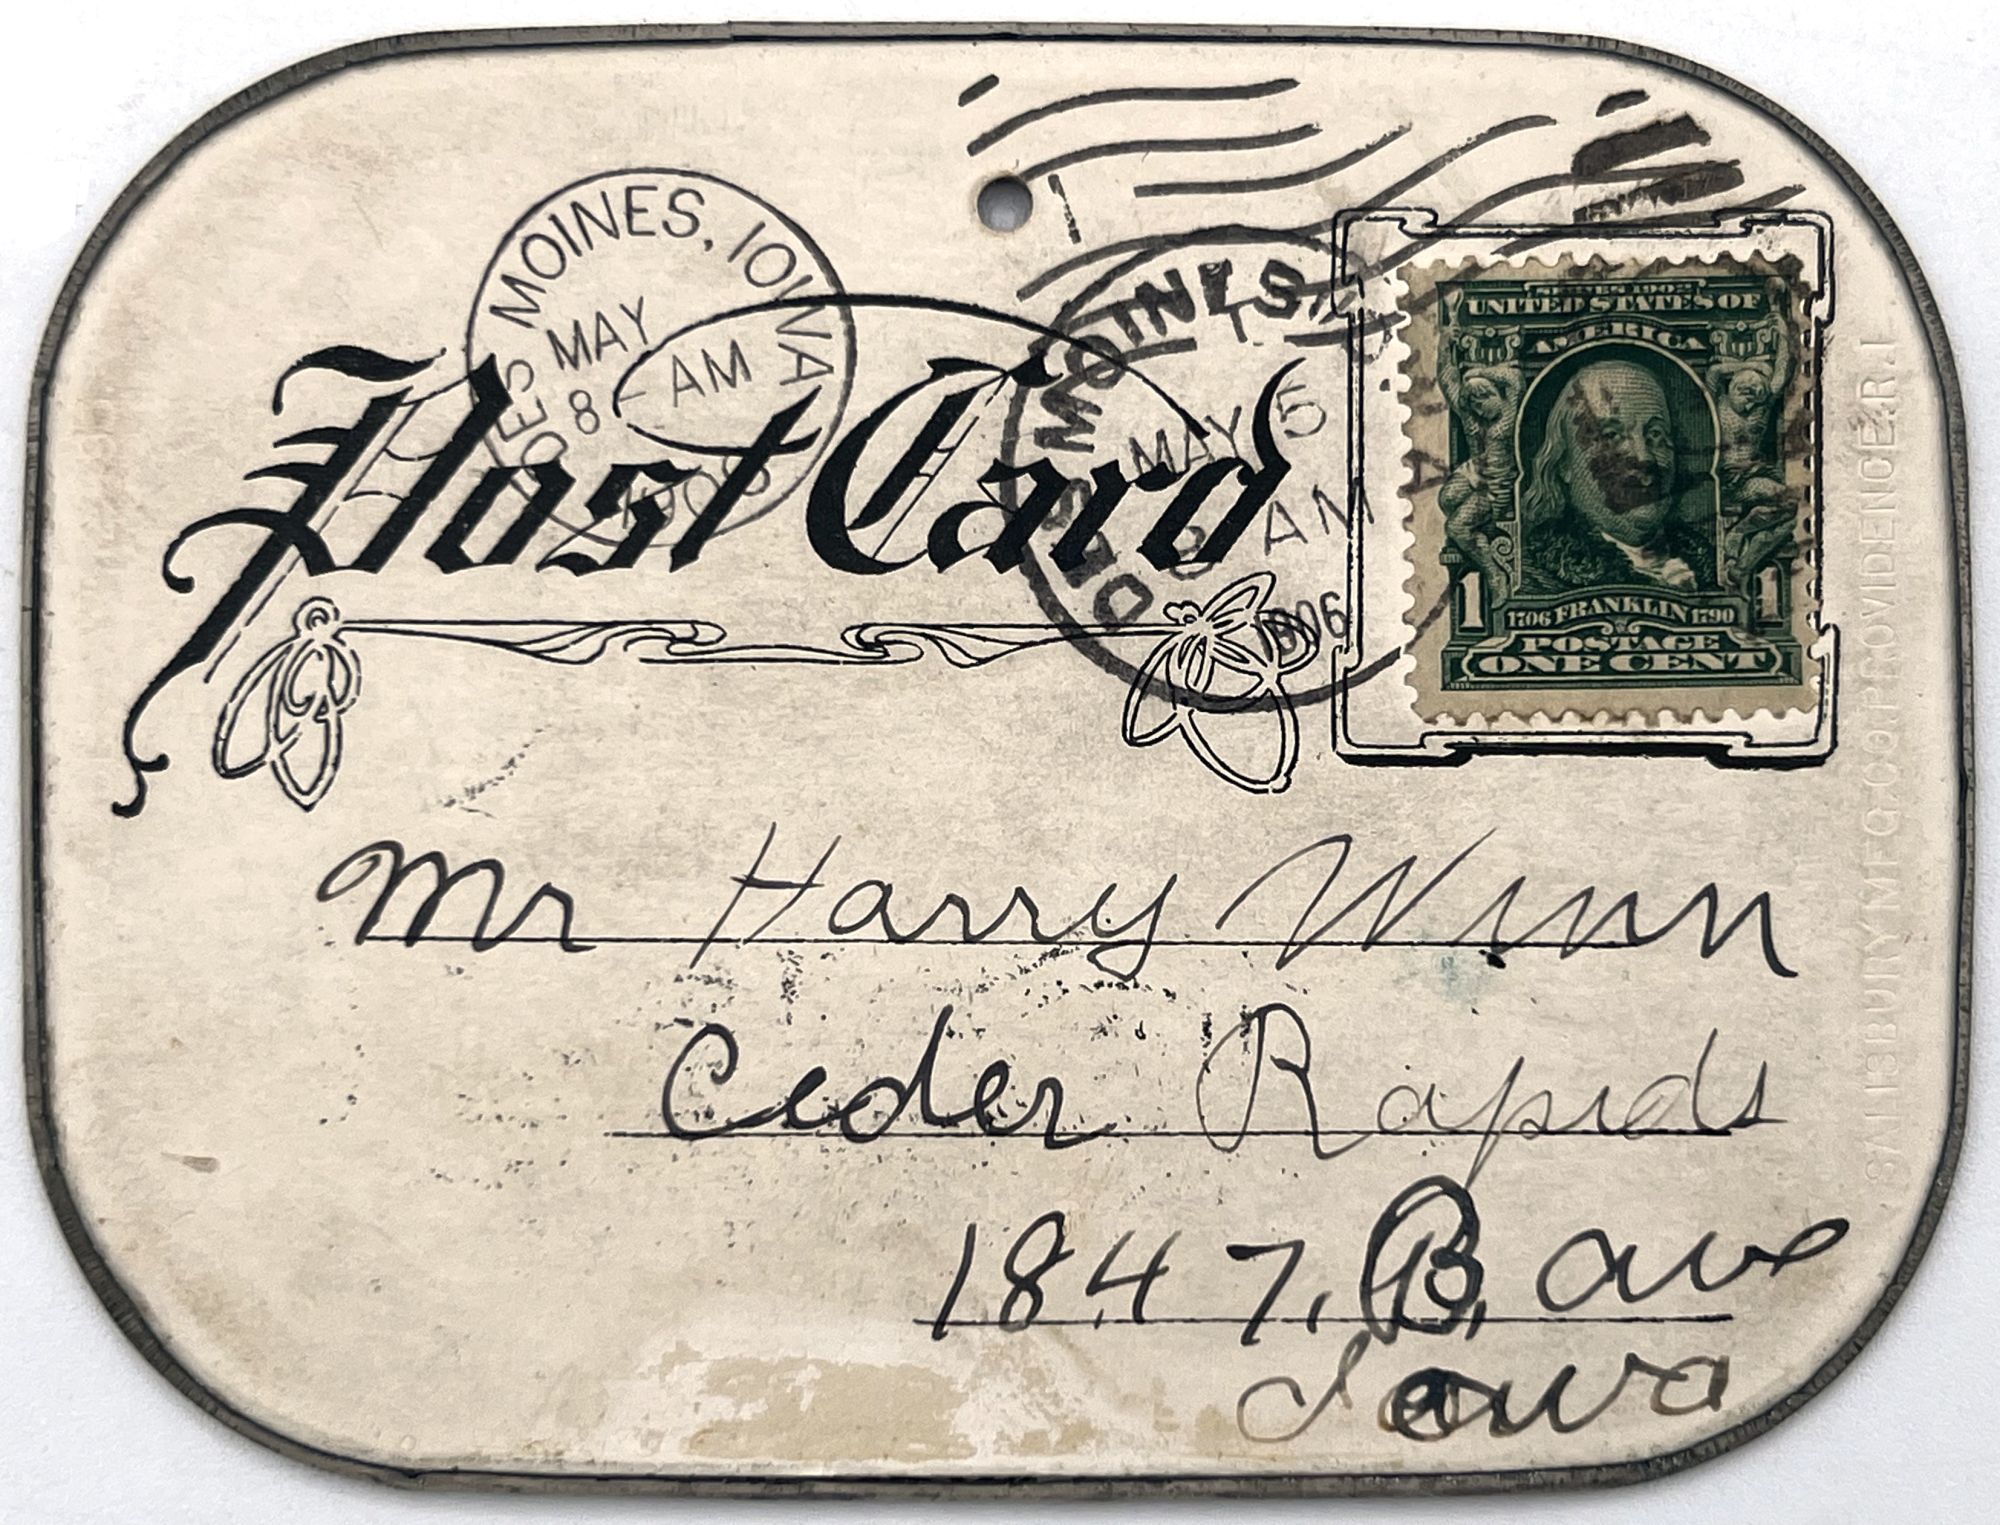 DES MOINES, IOWA
MAY
8 - AM
1906
DES MOINES
MAY 5
8 AM
1906
Post Card
SERIES 1902
UNITED STATES OF
AMERICA
1 1
1706 FRANKLIN 1790
POSTAGE
ONE CENT
SALISBURY MFG. CO. PROVIDENCE. R.I.
Mr Harry Winn
Ceder Rapids
1847, B, ave
Iowa